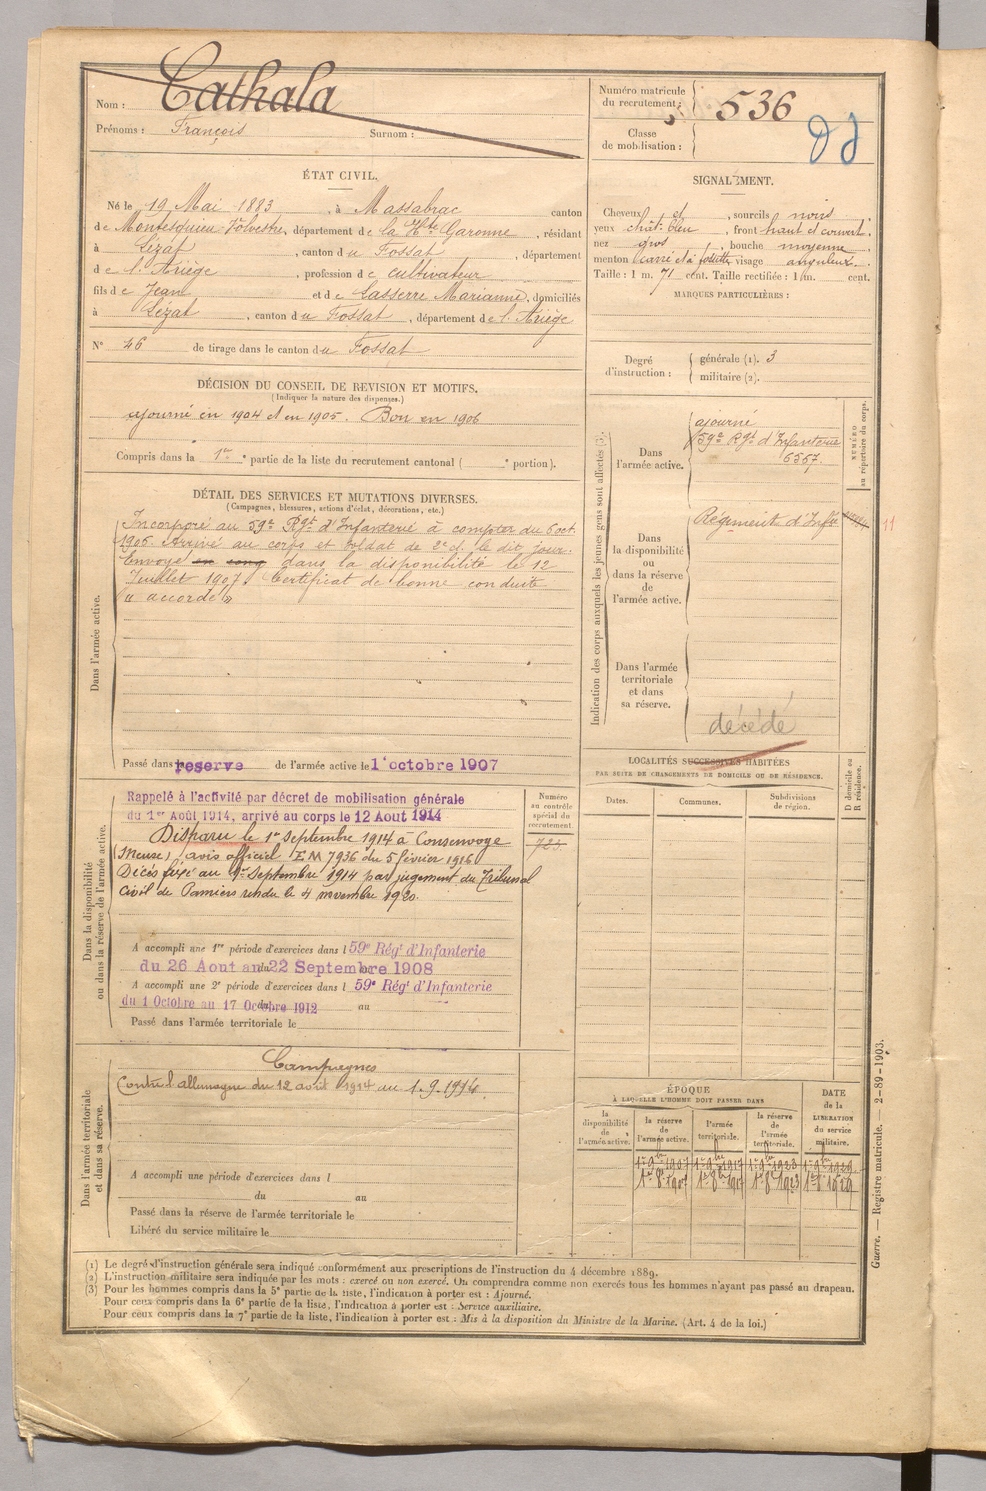 Nom : Cathala
Prénoms : François Surnom :
Numéro matricule du recrutement : 536
Classe de mobilisation :
ÉTAT CIVIL.
Né le 19 Mai 1883, à Massabrac canton
de Montesquieu Volvestre, département de la Hte Garonne, résidant
à Lézat, canton du Fossat, département
de l'Ariège, profession de cultivateur
fils de Jean et de Lasserre Marianne, domiciliés
à Lézat, canton du Fossat, département de l'Ariège
N° 46 de tirage dans le canton du Fossat
SIGNALEMENT.
Cheveux et, sourcils noirs
yeux chât. bleu, front haut et couvert
nez gros, bouche moyenne
menton carré et à fossette visage anguleux.
Taille : 1 m. 71 cent. Taille rectifiée : 1 m. cent.
MARQUES PARTICULIÈRES :
Degré d'instruction : générale (1). 3
militaire (2).
DÉCISION DU CONSEIL DE REVISION ET MOTIFS.
(Indiquer la nature des dispenses.)
ajourné en 1904 et en 1905. Bon en 1906
Compris dans la 1re partie de la liste du recrutement cantonal ( portion).
DÉTAIL DES SERVICES ET MUTATIONS DIVERSES.
(Campagnes, blessures, actions d'éclat, décorations, etc.)
Dans l'armée active.
Incorporé au 59e Rgt d'Infanterie à compter du 6 oct
1906. Arrivé au corps et soldat de 2e cl. le dit jour.
Envoyé en cong dans la disponibilité le 12
Juillet 1907. Certificat de bonne conduite
"accordé"
Passé dans réserve de l'armée active le 1r octobre 1907
Indication des corps auxquels les jeunes gens sont affectés (3).
NUMÉRO au répertoire du corps.
Dans l'armée active.
ajourné
59e Rgt d'Infanterie
6557.
Dans la disponibilité ou dans la réserve de l'armée active.
Régiment d'Infie
11
Dans l'armée territoriale et dans sa réserve.
décédé
Dans la disponibilité ou dans la réserve de l'armée active.
Rappelé à l'activité par décret de mobilisation générale
du 1er Août 1914, arrivé au corps le 12 Aout 1914
Disparu le 1er Septembre 1914 à Consenvoye
(Meuse), avis officiel EM 7936 du 5 février 1916
Décès fixé au 1er Septembre 1914 par jugement du Tribunal
Civil de Pamiers rendu le 4 novembre 1920.
A accompli une 1re période d'exercices dans l 59e Régt d'Infanterie
du 26 Aout au 22 Septembre 1908
A accompli une 2e période d'exercices dans l 59e Régt d'Infanterie
du 1 Octobre au 17 Octobre 1912 au
Passé dans l'armée territoriale le
Numéro au contrôle spécial du recrutement
LOCALITÉS SUCCESSIVES HABITÉES
PAR SUITE DE CHANGEMENTS DE DOMICILE OU DE RÉSIDENCE.
D domicile ou R résidence.
Dates. Communes. Subdivisions de région.
Dans l'armée territoriale et dans sa réserve.
Campagnes
Contre l'allemagne du 12 août 1914 au 1.9.1914.
A accompli une période d'exercices dans l
du au
Passé dans la réserve de l'armée territoriale le
Libéré du service militaire le
ÉPOQUE
À LAQUELLE L'HOMME DOIT PASSER DANS
la disponibilité de l'armée active.
la réserve de l'armée active.
l'armée territoriale.
la réserve de l'armée territoriale.
DATE de la LIBÉRATION du service militaire.
Guerre. — Registre matricule. — 2-89-1903.
(1) Le degré d'instruction générale sera indiqué conformément aux prescriptions de l'instruction du 4 décembre 1889.
(2) L'instruction militaire sera indiquée par les mots : exercé ou non exercé. On comprendra comme non exercés tous les hommes n'ayant pas passé au drapeau.
(3) Pour les hommes compris dans la 5e partie de la liste, l'indication à porter est : Ajourné.
Pour ceux compris dans la 6e partie de la liste, l'indication à porter est : Service auxiliaire.
Pour ceux compris dans la 7e partie de la liste, l'indication à porter est : Mis à la disposition du Ministre de la Marine. (Art. 4 de la loi.)